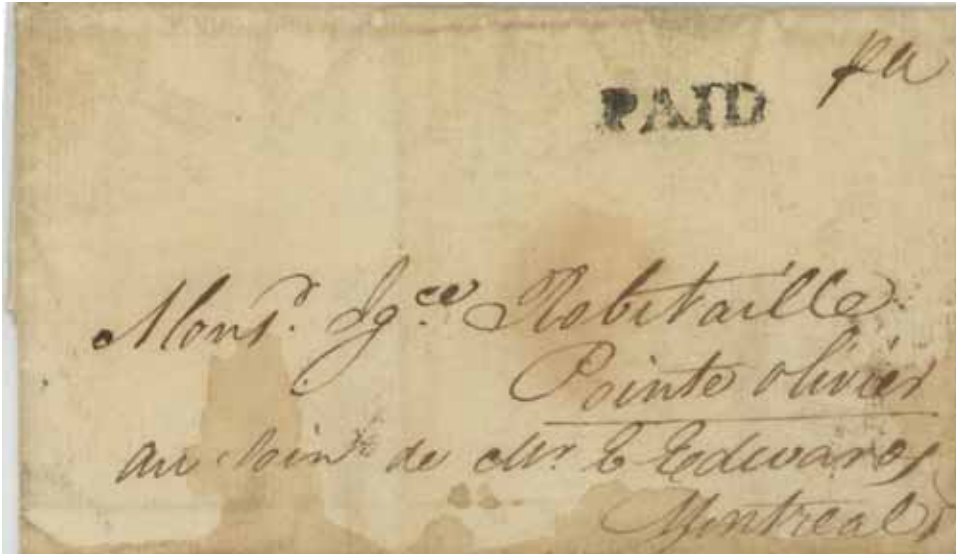 PAID
Monsr. Igce Robitaille
Pointe Olivier
au soin de Mr E Edwards
Montreal